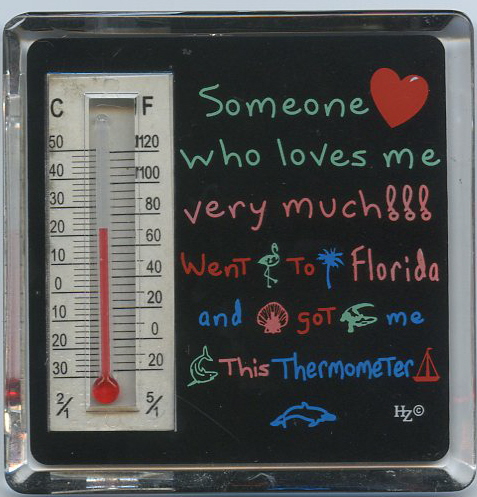 C F
50 120
40 100
30 80
20 60
10 40
0 20
10 0
20 20
30
2/1 5/1
Someone
who loves me
very much!!!
Went To Florida
and got me
This Thermometer
HZ©